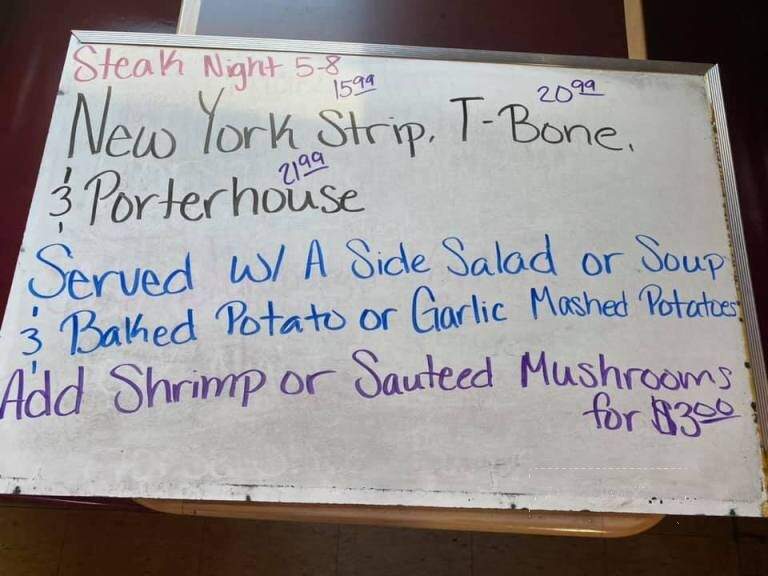 Steak Night 5-8
15.99 20.99
New York Strip, T-Bone,
21.99
& Porterhouse
Served w/ A Side Salad or Soup
& Baked Potato or Garlic Mashed Potatoes
Add Shrimp or Sauteed Mushrooms
for $3.00